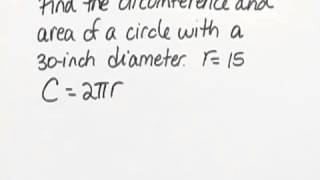 Find the circumference and
area of a circle with a
30-inch diameter. r=15
C=2πr